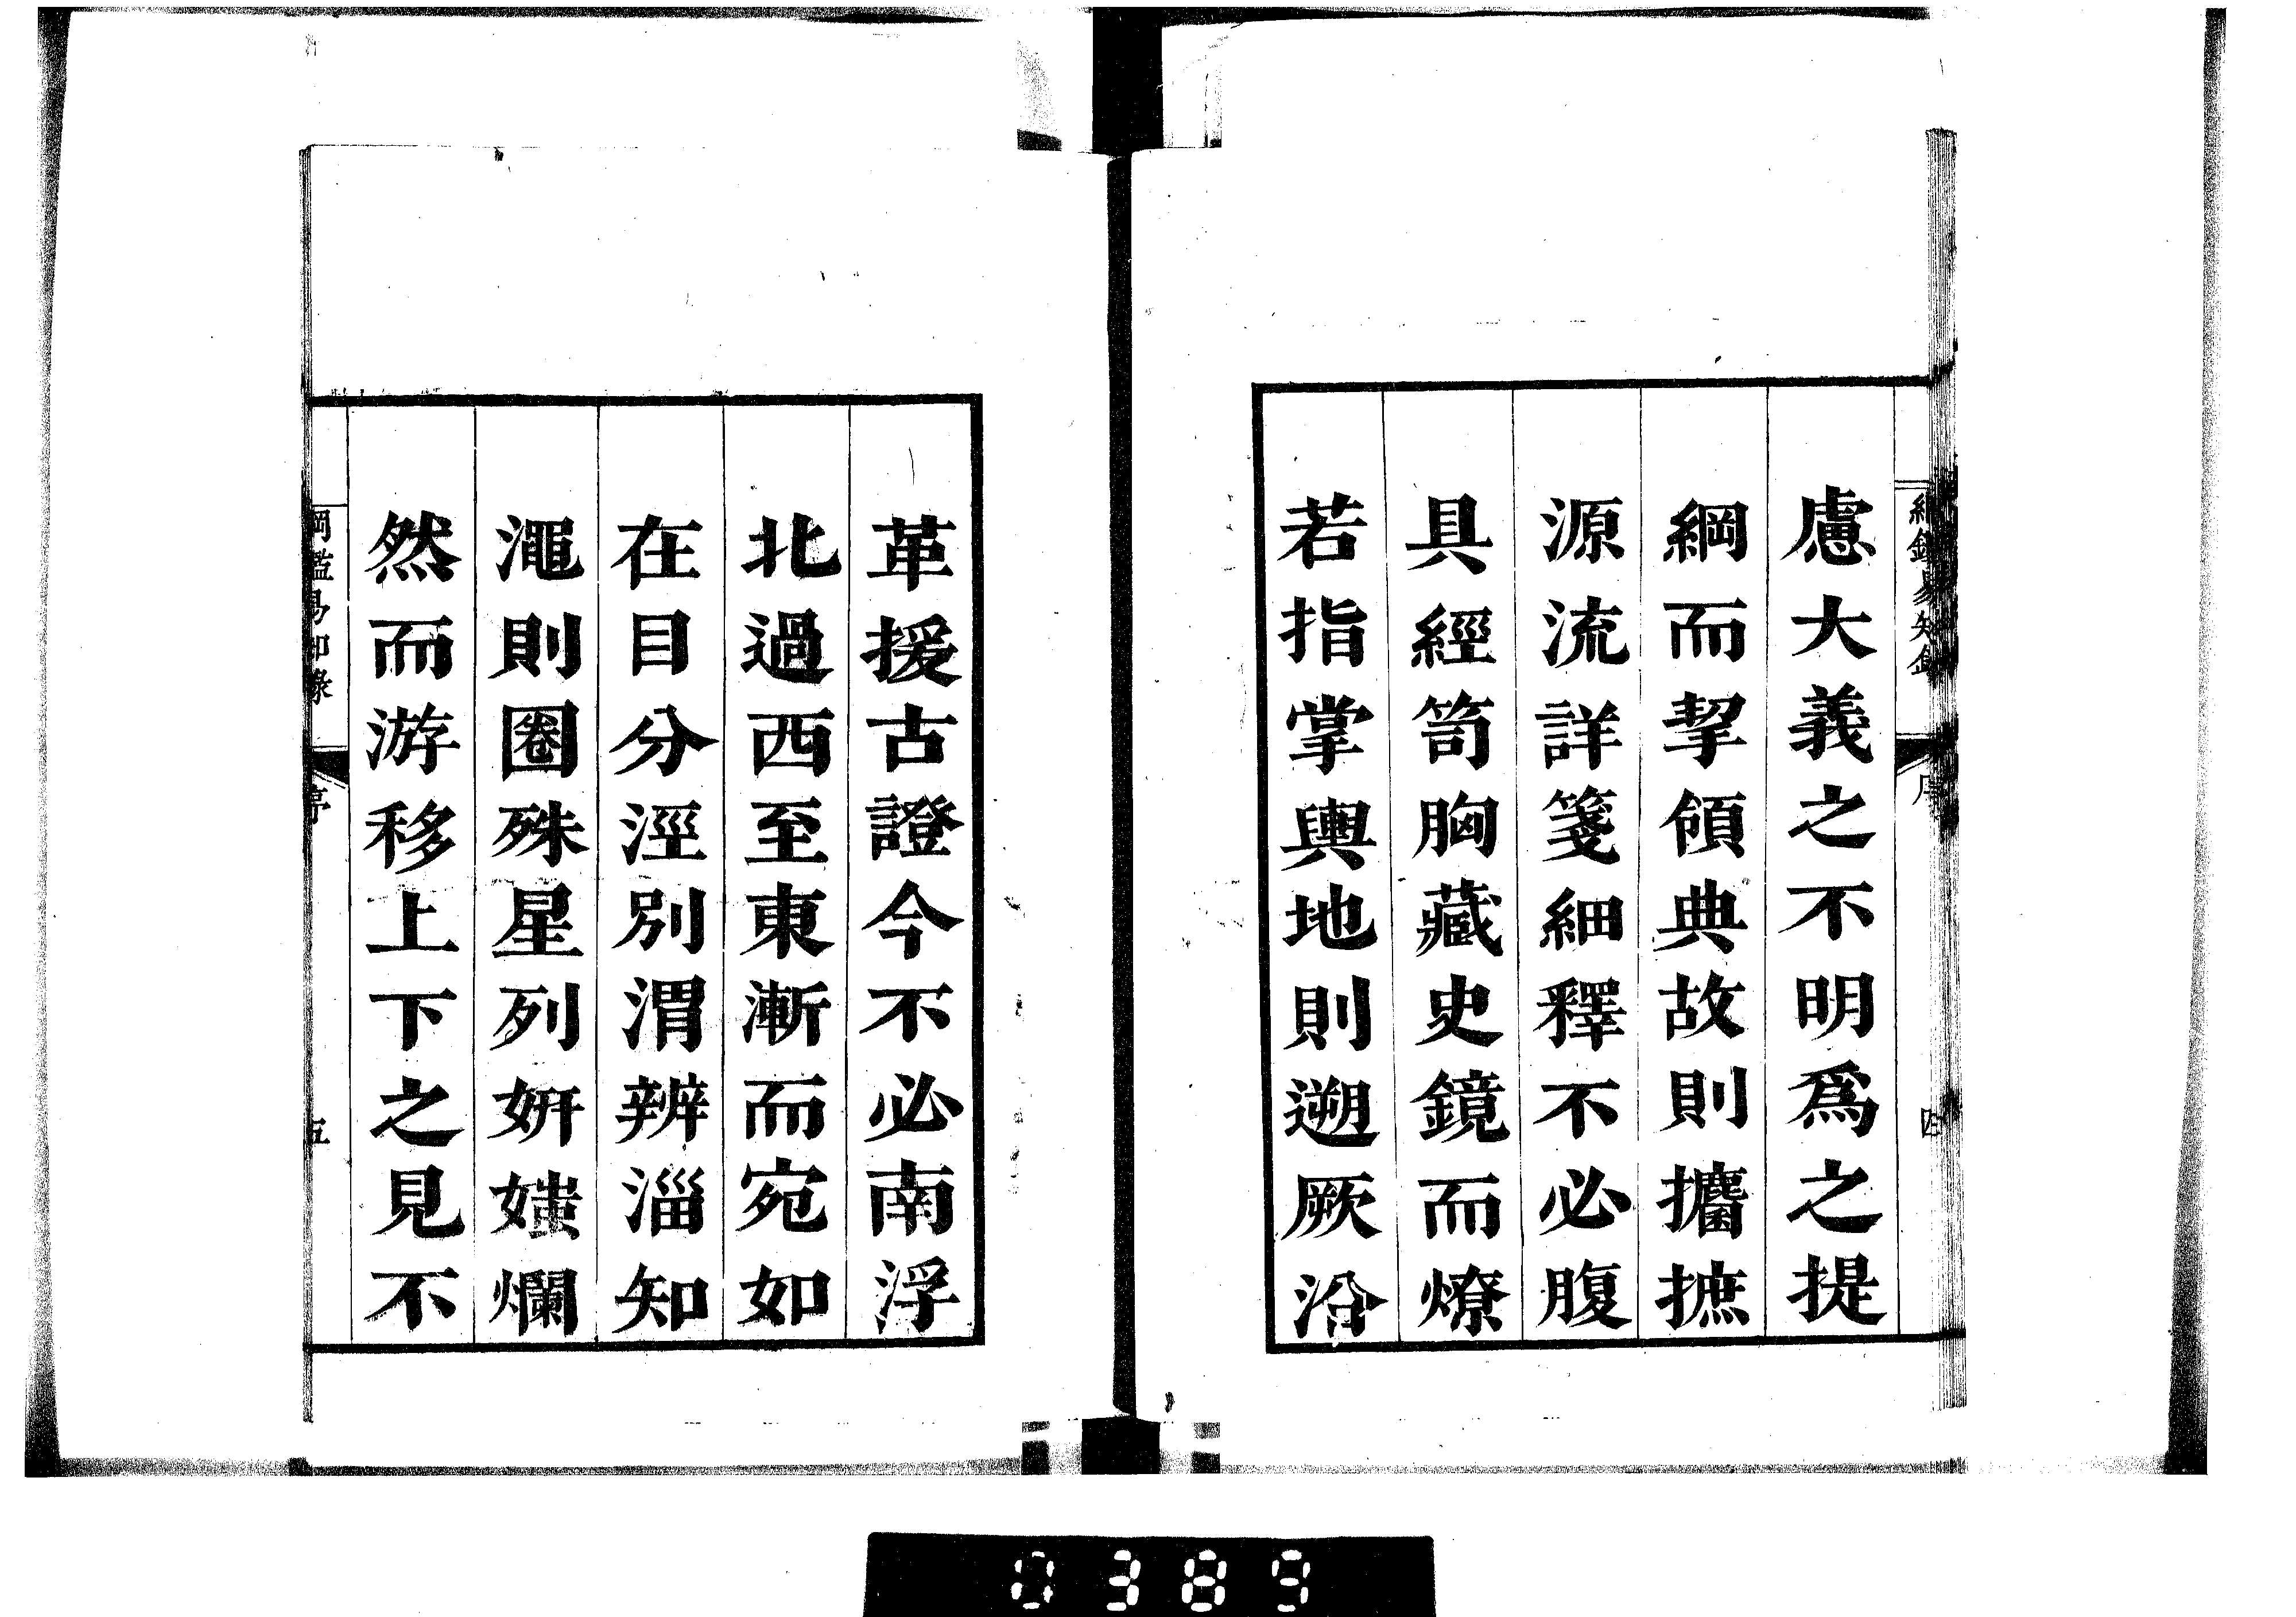 綱鑑易知錄
序
四
慮大義之不明爲之提
綱而挈領典故則攟摭
源流詳箋細釋不必腹
具經笥胸藏史鏡而燎
若指掌輿地則遡厥沿
革援古證今不必南浮
北過西至東漸而宛如
在目分涇別渭辨淄知
澠則圈殊星列妍媸爛
然而游移上下之見不
綱鑑易知錄
序
五
0389